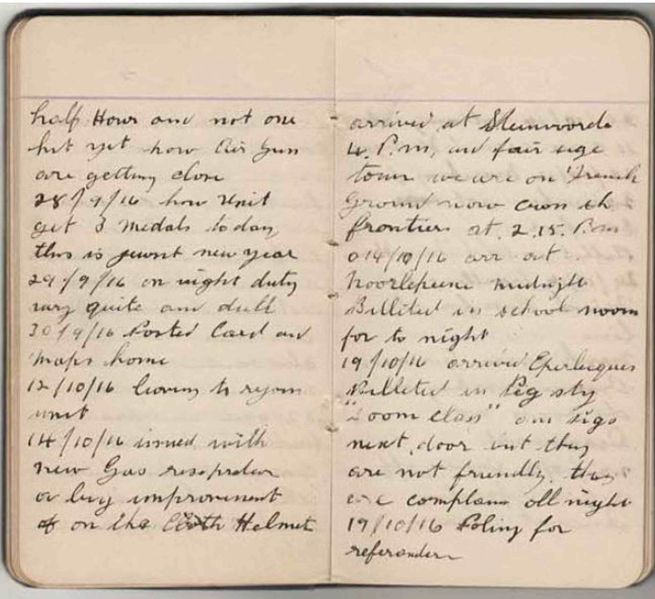 half Hour and not one
hit yet how Air Gun
are getting close
28/9/16 how Unit
get 3 medals today
this is new year
29/9/16 on night duty
very quite and dull
30/9/16 Posted Card and
maps home
12/10/16 leaving to rejoin
unit
14/10/16 issued with
new Gas
a big improvement
on the Helmet
arrived at Steinvoorde
4. P.m, and fair
town we are on French
Ground now
frontier at 2.15. P.m
14/10/16 arr at
midnight
Billited in school room
for to night
19/10/16 arrived Eperlecques
Billited in Pig sty
"Room class" our pigs
next door but they
are not friendly they
complain all night
19/10/16 Poling for